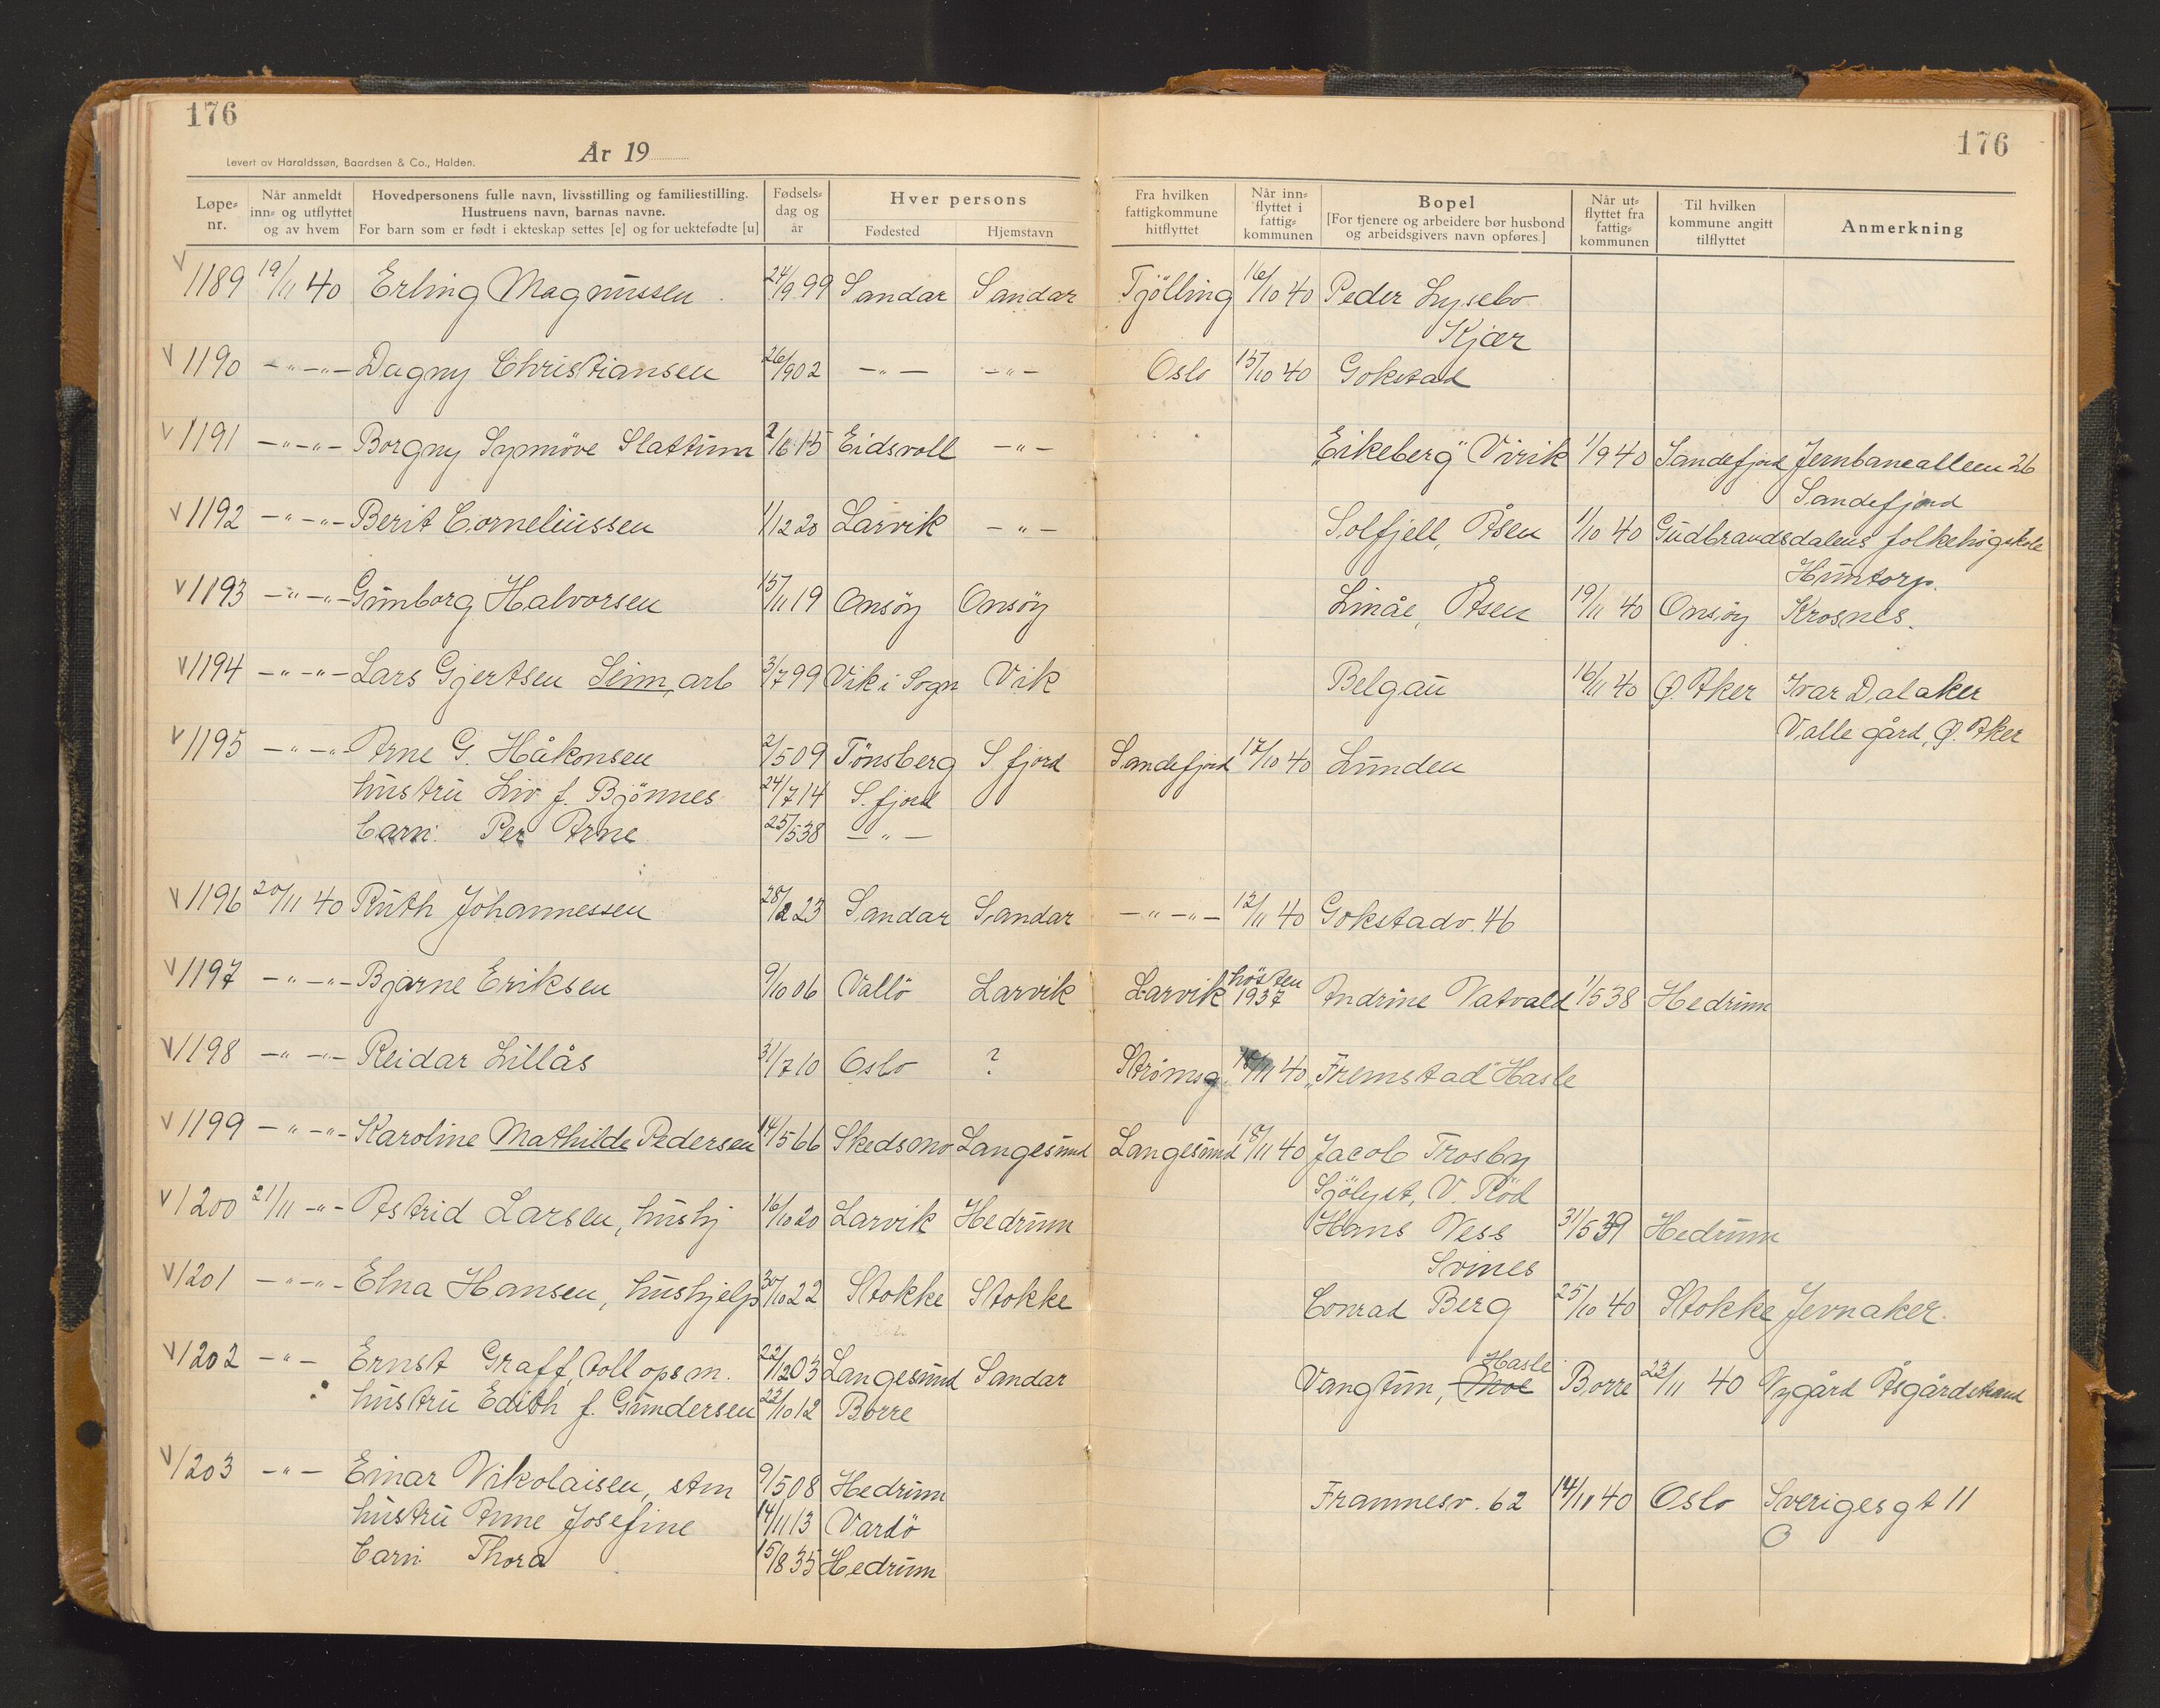 176
176
År 19
Levert av Haraldssøn, Baardsen & Co., Halden.
Løpe-nr. Når anmeldt inn- og utflyttet og av hvem Hovedpersonens fulle navn, livsstilling og familiestilling. Hustruens navn, barnas navne. For barn som er født i ekteskap settes [e] og for uektefødte [u] Fødsels-dag og år Hver persons Fødested Hjemstavn Fra hvilken fattigkommune hitflyttet Når inn-flyttet i fattig-kommunen Bopel [For tjenere og arbeidere bør husbond og arbeidsgivers navn opføres.] Når ut-flyttet fra fattig-kommunen Til hvilken kommune angitt tilflyttet Anmerkning
V 1189 19/11 40 Erling Magnussen. 24/9 99 Sandar Sandar Tjölling 16/10 40 Peder Lysebo
Kjær
V 1190 -"-"- Dagny Christiansen 26/9 02 -"- -"- Oslo 15/10 40 Gokstad
V 1191 -"-"- Borgny Synnöve Slattum 2/6 15 Eidsvoll -"- "Eikeberg" Virik 1/9 40 Sandefjord Jernbanealleen 26
Sandefjord
V 1192 -"-"- Berit Corneliussen 1/12 20 Larvik -"- Solfjell, Åsen 1/10 40 Gudbrandsdalens folkehögskole
Huntorp.
V 1193 -"-"- Gunborg Halvorsen 15/11 19 Onsöy Onsöy Linåe, Åsen 19/11 40 Onsöy Krosnes.
V 1194 -"-"- Lars Gjertsen Seim, arb 3/7 99 Vik i Sogn Vik Belgau 16/11 40 Ø. Aker Ivar Dalaker
Valle gård, Ø. Aker
V 1195 -"-"- Arne G. Håkonsen 2/5 09 Tönsberg S. fjord Sandefjord 17/10 40 Lunden
hustru Liv f. Bjönnes 24/7 14 S. fjord
barn: Per Arne 25/5 38 -"-
V 1196 20/11 40 Ruth Johannessen 28/2 23 Sandar Sandar -"-"- 12/11 40 Gokstadv. 46
V 1197 -"-"- Bjarne Eriksen 9/10 06 Vallö Larvik Larvik hösten 1937 Andrine Natvald 1/5 38 Hedrum
V 1198 -"-"- Reidar Lillås 31/7 10 Oslo ? Strömsg. /11 40 "Fremstad" Hasle
V 1199 -"-"- Karoline Mathilde Pedersen 14/5 66 Skedsmo Langesund Langesund 18/11 40 Jacob Trosby
Sjölyst, V. Röd
V 1200 21/11 -"- Astrid Larsen, hushj 16/10 20 Larvik Hedrum Hans Ness 31/5 39 Hedrum
Svines
V 1201 -"-"- Elna Hansen, hushjelp 30/10 22 Stokke Stokke Conrad Berg 25/10 40 Stokke Jernaker.
V 1202 -"- Ernst Graff, tollopsm. 22/12 03 Langesund Sandar Vangtun, Moe Hasle Borre 22/11 40 Nygård Åsgårdstrand
hustru Edith f. Gundersen 22/10 12 Borre
V 1203 -"- Einar Nikolaisen, stm 9/5 08 Hedrum Framnesv. 62 14/11 40 Oslo Sverigesgt 11
O
hustru Anne Josefine 14/11 13 Vardö
barn Thora 15/8 35 Hedrum